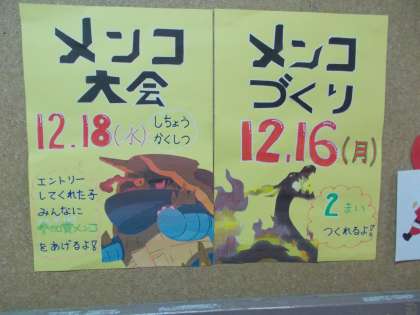 メンコ
大会
12.18(水)
しちょう
かくしつ
エントリー
してくれた子
みんなに
参加賞メンコ
をあげるよ!
メンコ
づくり
12.16(月)
2まい
つくれるよ!